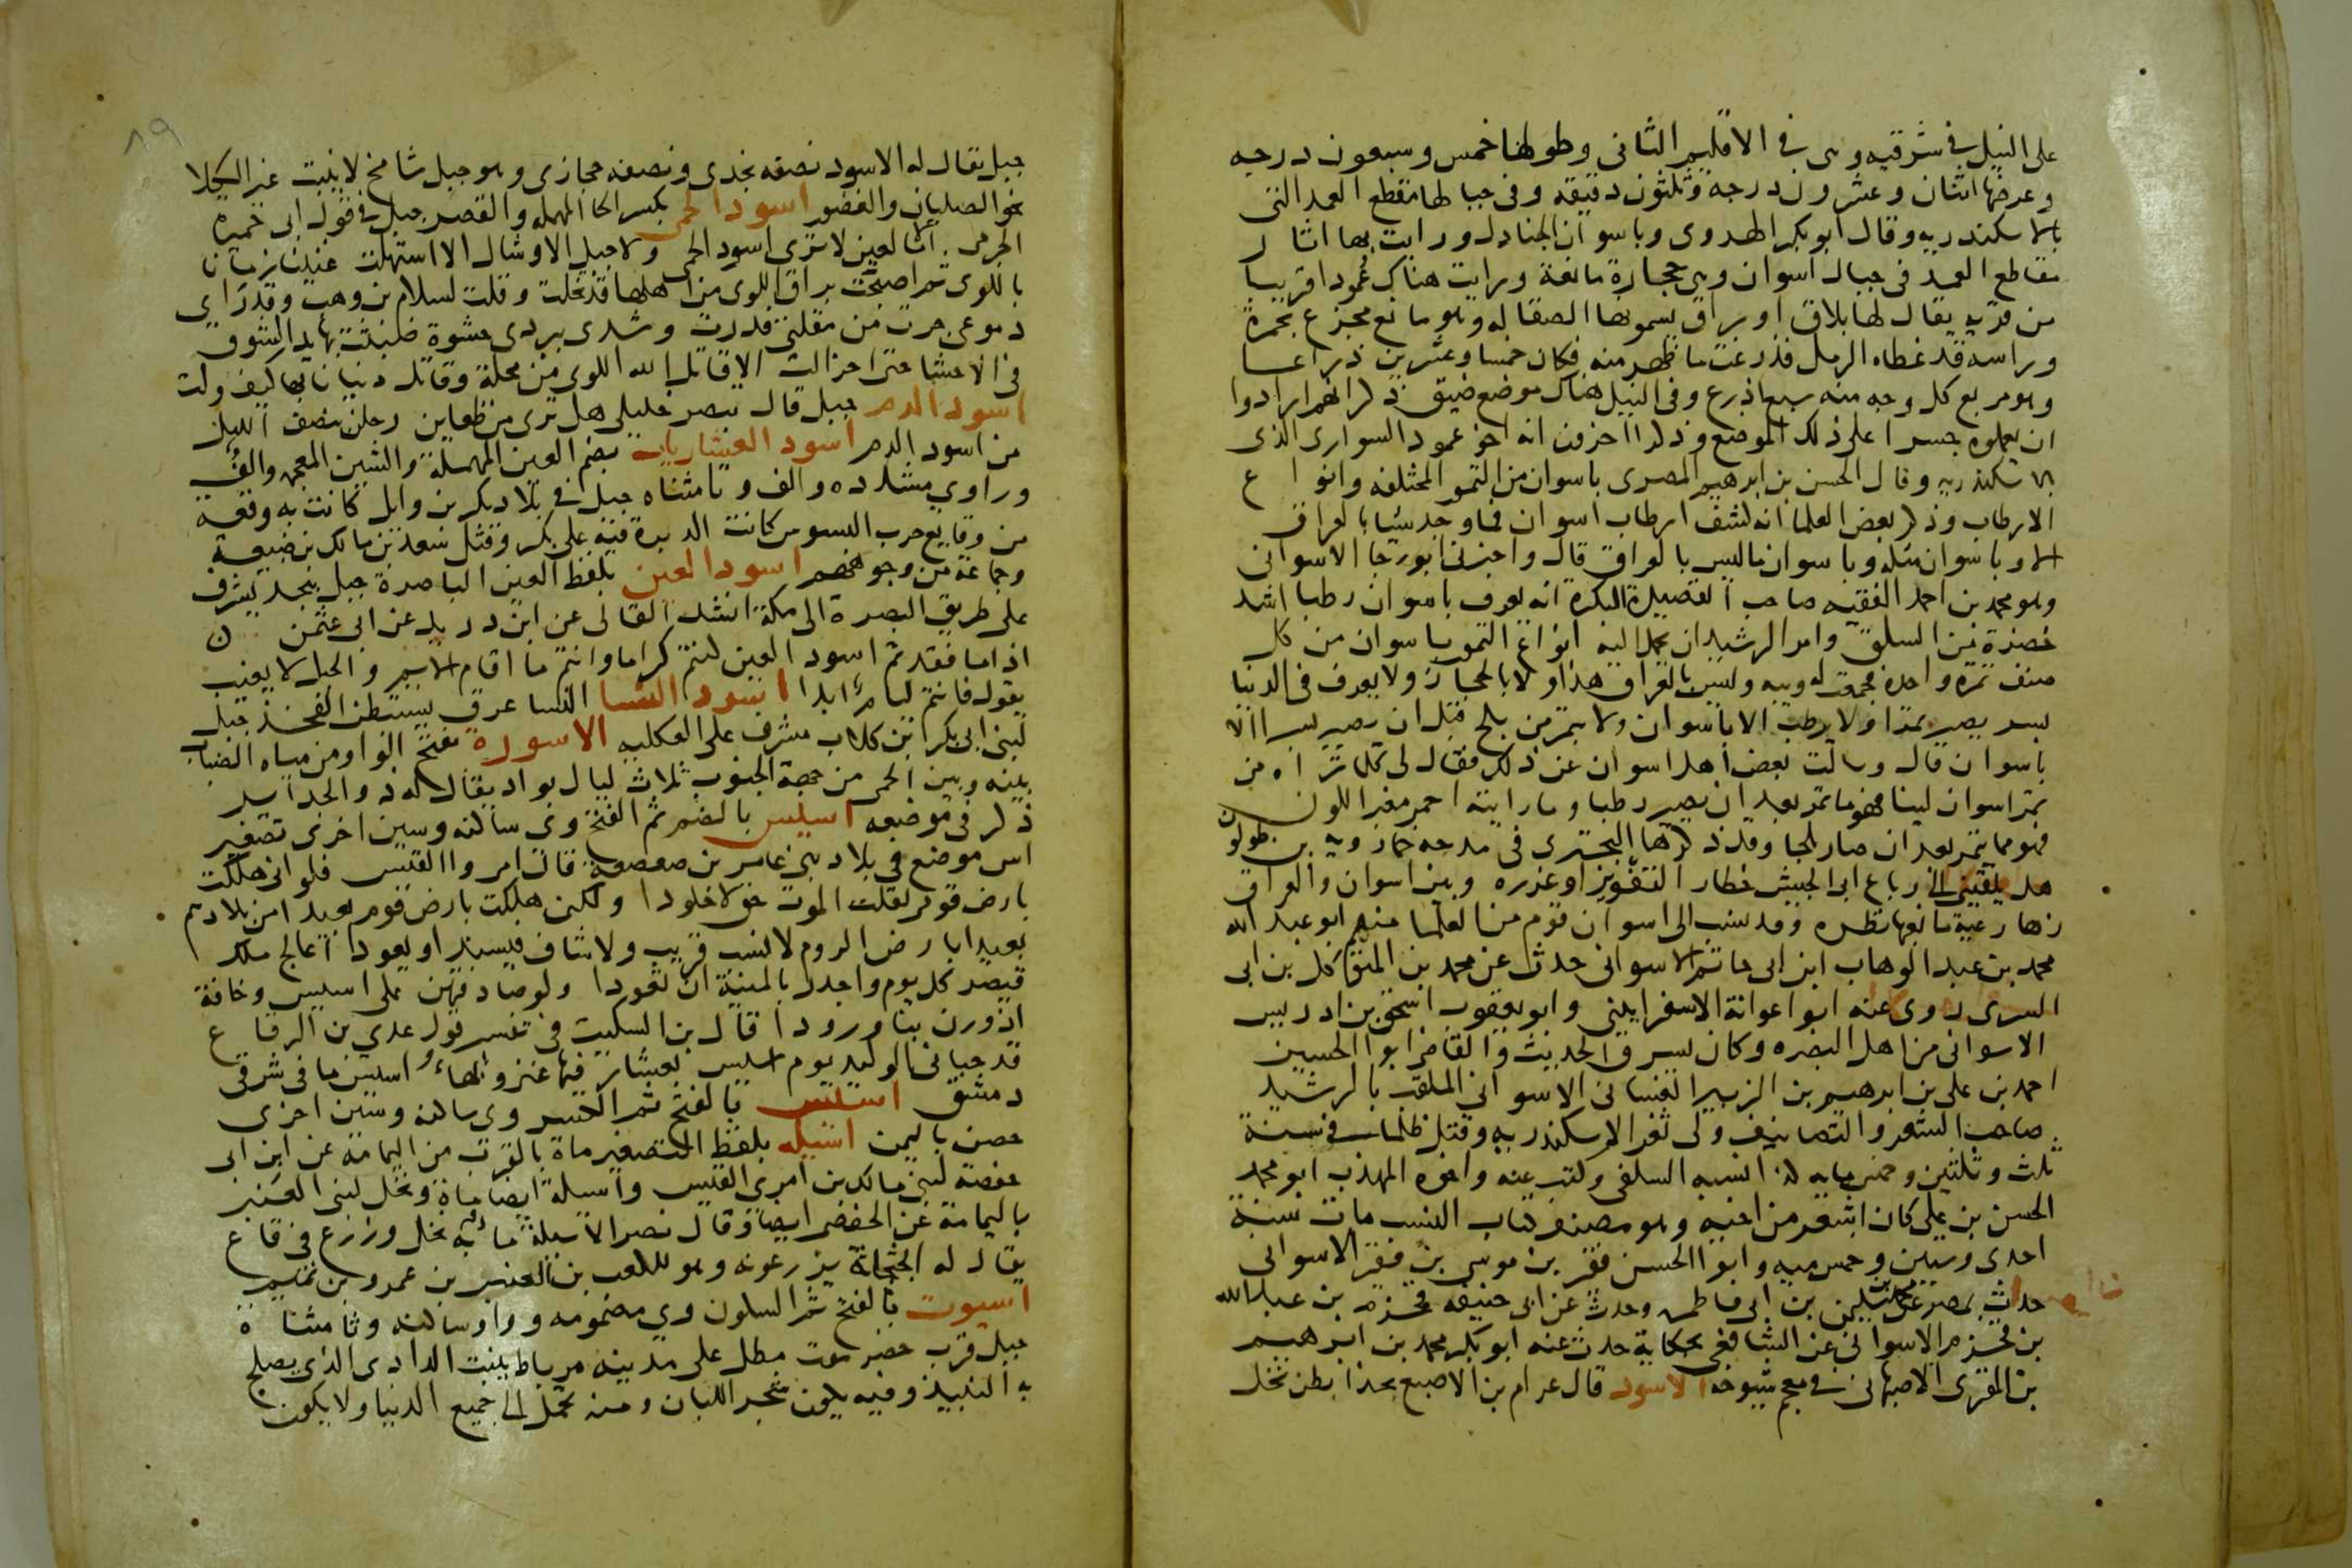 على النيل في شرقيه وهى في الاقليم الثانى وطولها خمس وسبعون درجه
وعرضها اثنان وعشرون درجة وثلثون دقيقه وفى جبالها مقطع العمد التى
بالاسكندريه وقال ابو بكر الهروى وباسوان الجنادل ورايت بها اثار
مقاطع العمد فى جبال اسوان وهى حجارة مانعة ورايت هناك عمودا قريبا
من قريه يقال لها بلاق او براق يسمونها الصقاله وهو مانع مجزع بحمرة
وراسه قد غطاه الرمل فذرعت ما ظهر منه فكان خمسا وعشرين ذراعا
وهو مربع كل وجه منه سبعة اذرع وفى النيل هناك موضع ضيق ذكر انهم ارادوا
ان يعملوه جسرا على ذلك الموضع وذكر اخرون انه اخو عمود السوارى الذى
بالاسكندريه وقال الحسن بن ابرهيم المصرى باسوان من التمور المختلفه وانواع
الارطاب وذكر بعض العلما انه كشف ارطاب اسوان فما وجد شيا بالعراق
الا وباسوان مثله وباسوان ما ليس بالعراق قال واخبرنى ابو رجا الاسوانى
وهو محمد بن احمد الفقيه صاحب القصيدة البكره انه يعرف باسوان رطبا اشد
خضرة من السلق وامر الرشيد ان يحمل اليه انواع التمور باسوان من كل
صنف تمرة واحدة فجمعت له ويبه وليس بالعراق هذا ولا بالحجاز ولا يعرف فى الدنيا
بسر يصير تمرا ولا يرطب الا باسوان ولا يتمر من بلح قبل ان يصير بسرا الا
باسوان قال وسالت بعض اهل اسوان عن ذلك فقال لى كل ما تراه من
تمر اسوان لينا فهو مما يتمر بعد ان يصير رطبا وما رايته احمر مغبر اللون
فهو مما يتمر بعد ان صار بلحا وقد ذكرها البحترى فى مدحه خمارويه بن طولون
هل يلقينى الى رباع ابى الجيش خطار التغوير او غرره وبين اسوان والعراق
زها رعية ما يغبها نظره وقد نسب الى اسوان قوم من العلما منهم ابو عبد الله
محمد بن عبد الوهاب ابن ابى حاتم الاسوانى حدث عن محمد بن المتوكل بن ابى
السرى روى عنه ابو اعوانة الاسفراينى وابو يعقوب اسحق بن ادريس
الاسوانى من اهل البصره وكان يسرق الحديث والقاضى ابو الحسين
احمد بن على بن ابرهيم بن الزبير الغسانى الاسوانى الملقب بالرشيد
صاحب الشعر والتصانيف ولى ثغر الاسكندريه وقتل ظلما فى سنة
ثلث وثلثين وخمس مايه كذا نسبه السلفى وكتب عنه واخوه المهذب ابو محمد
الحسن بن على كان اشعر من اخيه وهو مصنف كتاب النسب مات سنة
احدى وستين وخمس ميه وابو الحسن فقر بن موسى بن فقر الاسوانى
حدث بمصر عن محمد بن سليمن بن ابى فاطمه وحدث عن ابى حنيفه قحزم بن عبد الله
بن قحزم الاسوانى عن الشافعى بحكاية حدث عنه ابو بكر محمد بن ابرهيم
بن المقرى الاصبهانى فى معجم شيوخه الاسود قال عرام بن الاصبع بحذا بطن نخل
٨٩
جبل يقال له الاسود نصفه نجدى ونصفه حجازى وهو جبل شامخ لا ينبت غير الكلا
نحو الصليان والغضور اسود الحمى بكسر الحا المهمله والقصر جبل فى قول ابى عميرة
الجرمى . الا ما لعين لا ترى اسود الحمى ولا جبل الاوشال الا استهلت غنينا زمانا
باللوى ثم اصبحت براق اللوى من اهلها قد تخلت وقلت لسلام بن وهب وقد راى
دموعى جرت من مقلتى فدرت وشدى بردى حشوة ضبثت بها يد الشوق
فى الاحشا حتى احزالت الا قاتل الله اللوى من محلة وقاتل دنيانا بها كيف ولت
اسود الدم جبل قال تبصر خليلى هل ترى من ظعاين رحلن بنصف الليل
من اسود الدم اسود العشاريات بضم العين المهملة والشين المعجمه والف
وراوى مشدده والف وتا مثناه جبل فى بلاد بكر بن وايل كانت به وقعه
من وقايع حرب البسوس كانت الدبرة فيه على بكر وقتل سعد بن مالك بن ضبيعة
وجماعة من وجوههم اسود العين بلفظ العين الباصرة جبل بنجد يشرف
على طريق البصرة الى مكة انشد القالى عن ابن دريد عن ابى عثمن
اذا ما فقدتم اسود العين كنتم كراما وانتم ما اقام الايم والجبل لا يغيب
يقول فانتم ليام ابدا اسود النسا النسا عرق يستبطن الفخذ جبل
لبنى ابى بكر ابن كلاب مشرف على العكليه الاسورة بفتح الواو من مياه الضباب
بينه وبين الحمى من جهة الجنوب ثلاث ليال بواد يقال له ذو الجداير
ذكر فى موضعه اسيس بالضم ثم الفتح وى ساكنه وسين اخرى تصغير
اس موضع فى بلاد بنى عامر بن صعصعة قال امرو القيس فلو انى هلكت
بارض قومى لقلت الموت حق لا خلودا ولكن هلكت بارض قوم بعيد امن بلادهم
بعيدا بارض الروم لا نسب قريب ولا شاف فيسند او يعودا اعالج ملك
قيصر كل يوم واجدر بالمنية ان تقودا ولو صادفهن على اسيس وخافة
اذ وردن بنا ورودا قال بن السكيت فى تفسير قول عدى بن الرقاع
قد حبانى الوليد يوم اسيس بعشار فيها غنى وبهاء اسيس ما فى شرقى
دمشق اسيس بالفتح ثم الكسر وى ساكنه وسين اخرى
حصن باليمن اسيله بلفظ التصغير ماة بالقرب من اليمامة عن ابن ابى
حفصة لبنى مالك بن امرى القيس واسيلة ايضا ماة ونخل لبنى العنبر
باليمامة عن الحفصى ايضا وقال نصر الاسيلة ما به نخل وزرع فى قاع
يقال له الجثجاثة يزرعونه وهو لكعب بن العنبر بن عمرو بن تميم
اسيوت بالفتح ثم السكون وى مضمومه وواو ساكنه وتا مثناة
جبل قرب حضرموت مطل على مدينه مرباط ينبت الدادى الذى يصلح
به النبيذ وفيه يكون شجر اللبان ومنه يحمل الى جميع الدنيا ولا يكون